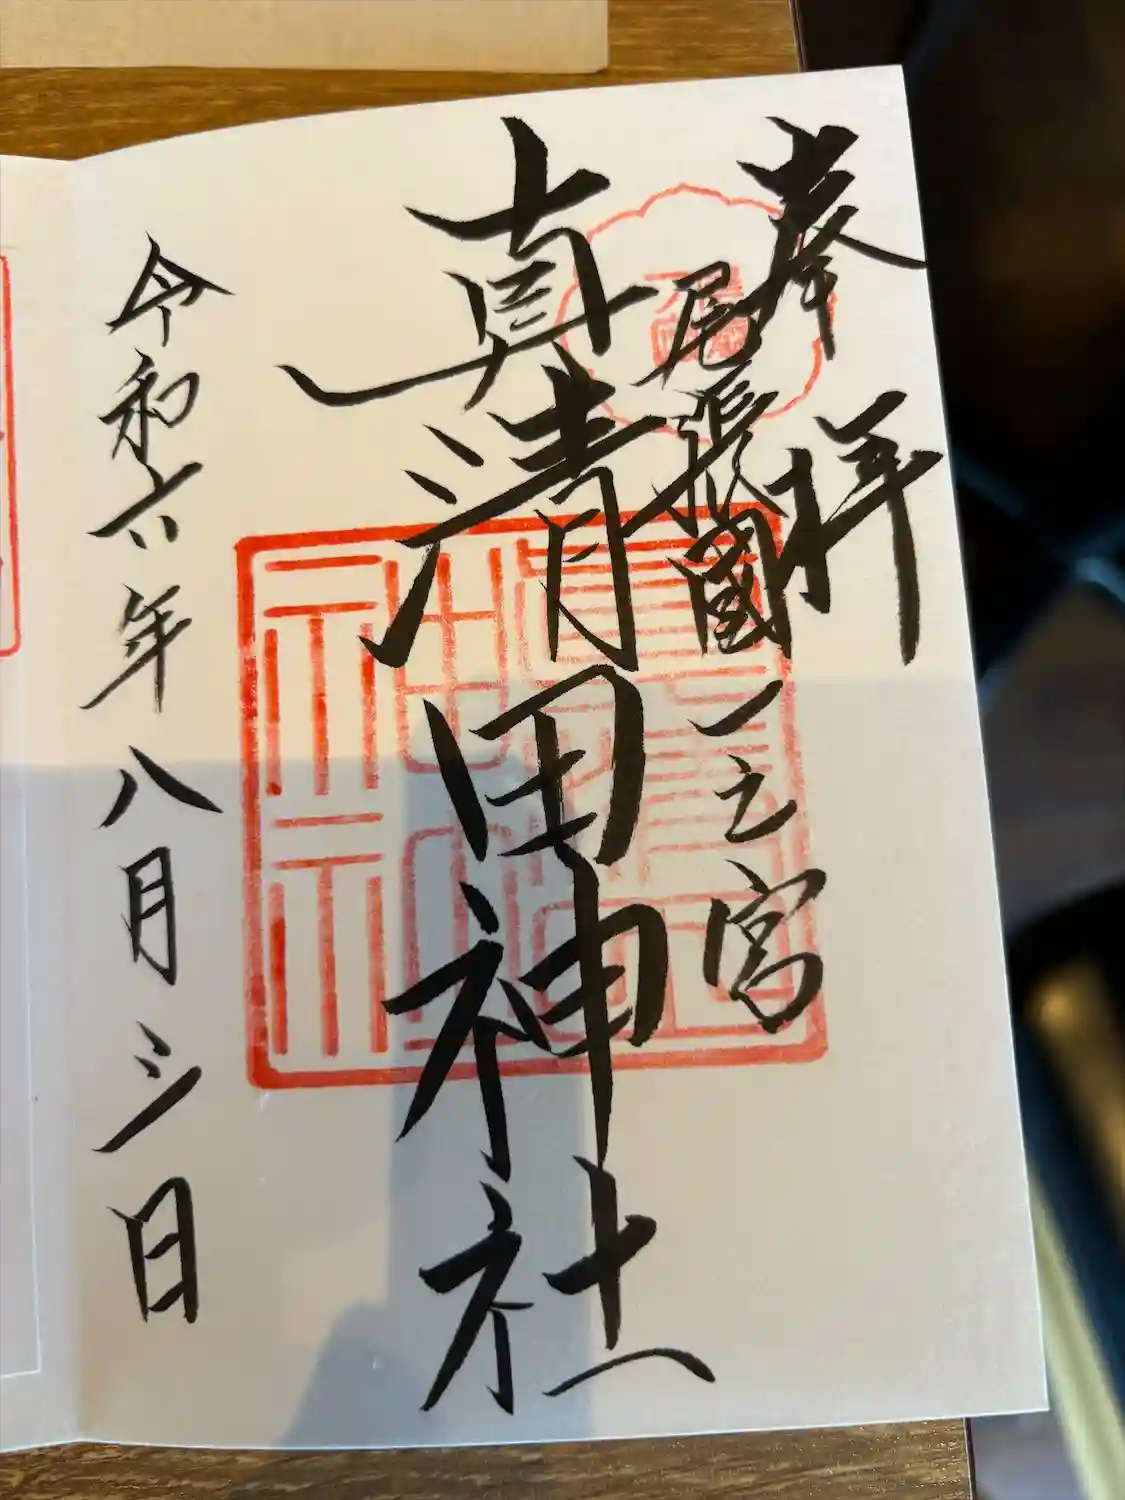 奉拝
尾張國一之宮
真清田神社
令和六年八月三日